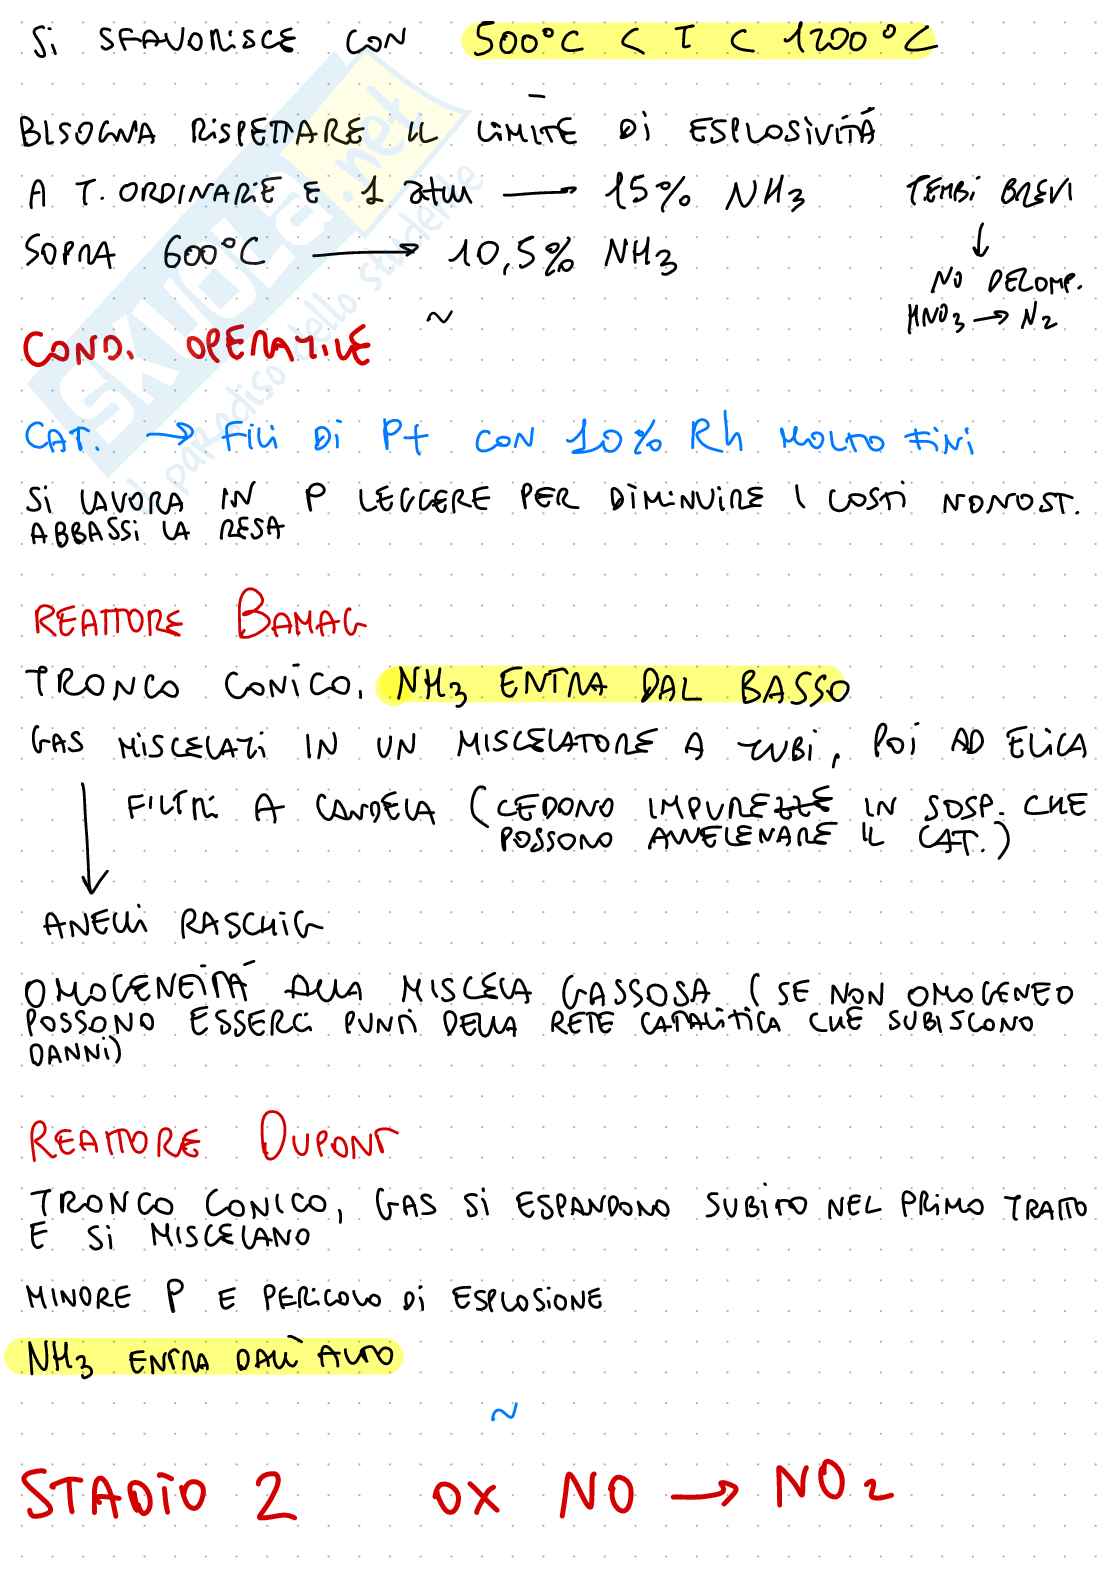 Si SFAVORISCE CON 500°C < T < 1200°C
BISOGNA RISPETTARE IL LIMITE DI ESPLOSIVITÁ
A T. ORDINARIE E 1 atm → 15% NH3
SOPRA 600°C → 10,5% NH3
TEMPI BREVI
↓
NO DECOMP.
HNO3 → N2
~
COND. OPERATIVE
CAT. → FILI DI Pt CON 10% Rh MOLTO FINI
SI LAVORA IN P LEGGERE PER DIMINUIRE I COSTI NONOST.
ABBASSI LA RESA
REATTORE BAMAG
TRONCO CONICO. NH3 ENTRA DAL BASSO
GAS MISCELATI IN UN MISCELATORE A TUBI, POI AD ELICA
FILTRI A CANDELA (CEDONO IMPUREZZE IN SOSP. CHE
POSSONO AVVELENARE IL CAT.)
ANELLI RASCHIG
OMOGENEITÁ ALLA MISCELA GASSOSA (SE NON OMOGENEO
POSSONO ESSERCI PUNTI DELLA RETE CATALITICA CHE SUBISCONO
DANNI)
REATTORE DUPONT
TRONCO CONICO, GAS SI ESPANDONO SUBITO NEL PRIMO TRATTO
E SI MISCELANO
MINORE P E PERICOLO DI ESPLOSIONE
NH3 ENTRA DALL'ALTO
~
STADIO 2 OX NO → NO2
SKUOLA.net
il paradiso dello studente